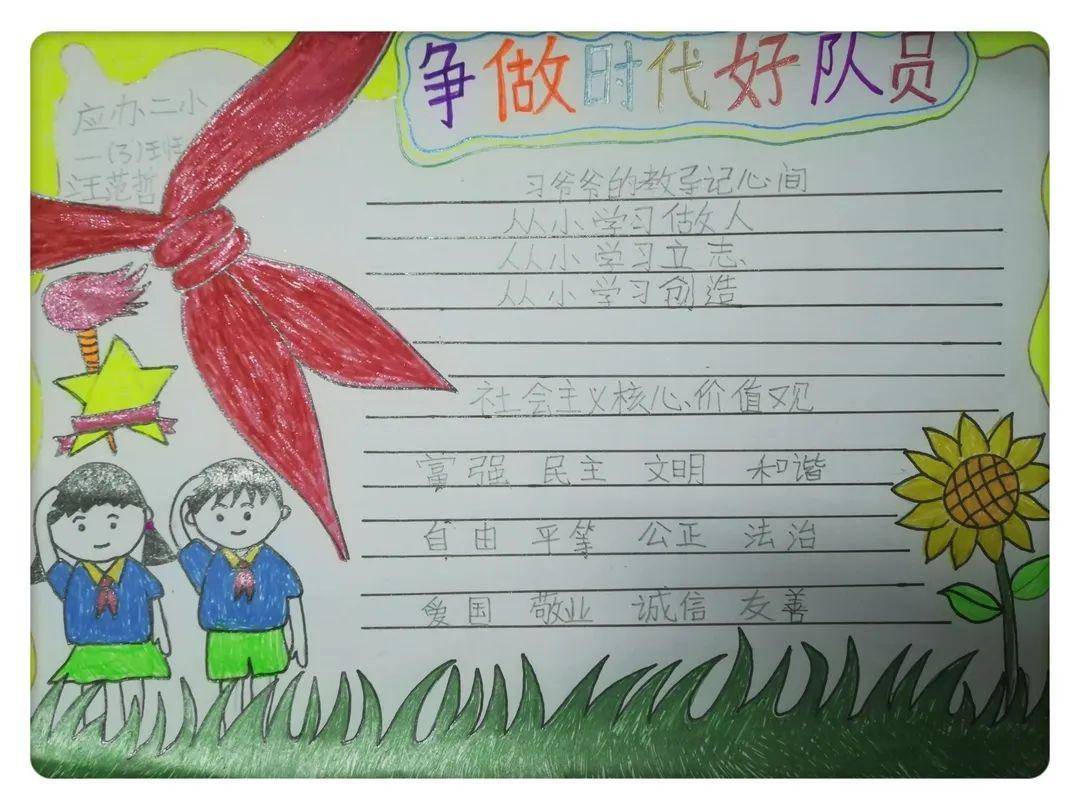 争做时代好队员
应办二小
一(3)班
汪范哲
习爷爷的教导记心间
从小学习做人
从小学习立志
从小学习创造
社会主义核心价值观
富强 民主 文明 和谐
自由 平等 公正 法治
爱国 敬业 诚信 友善